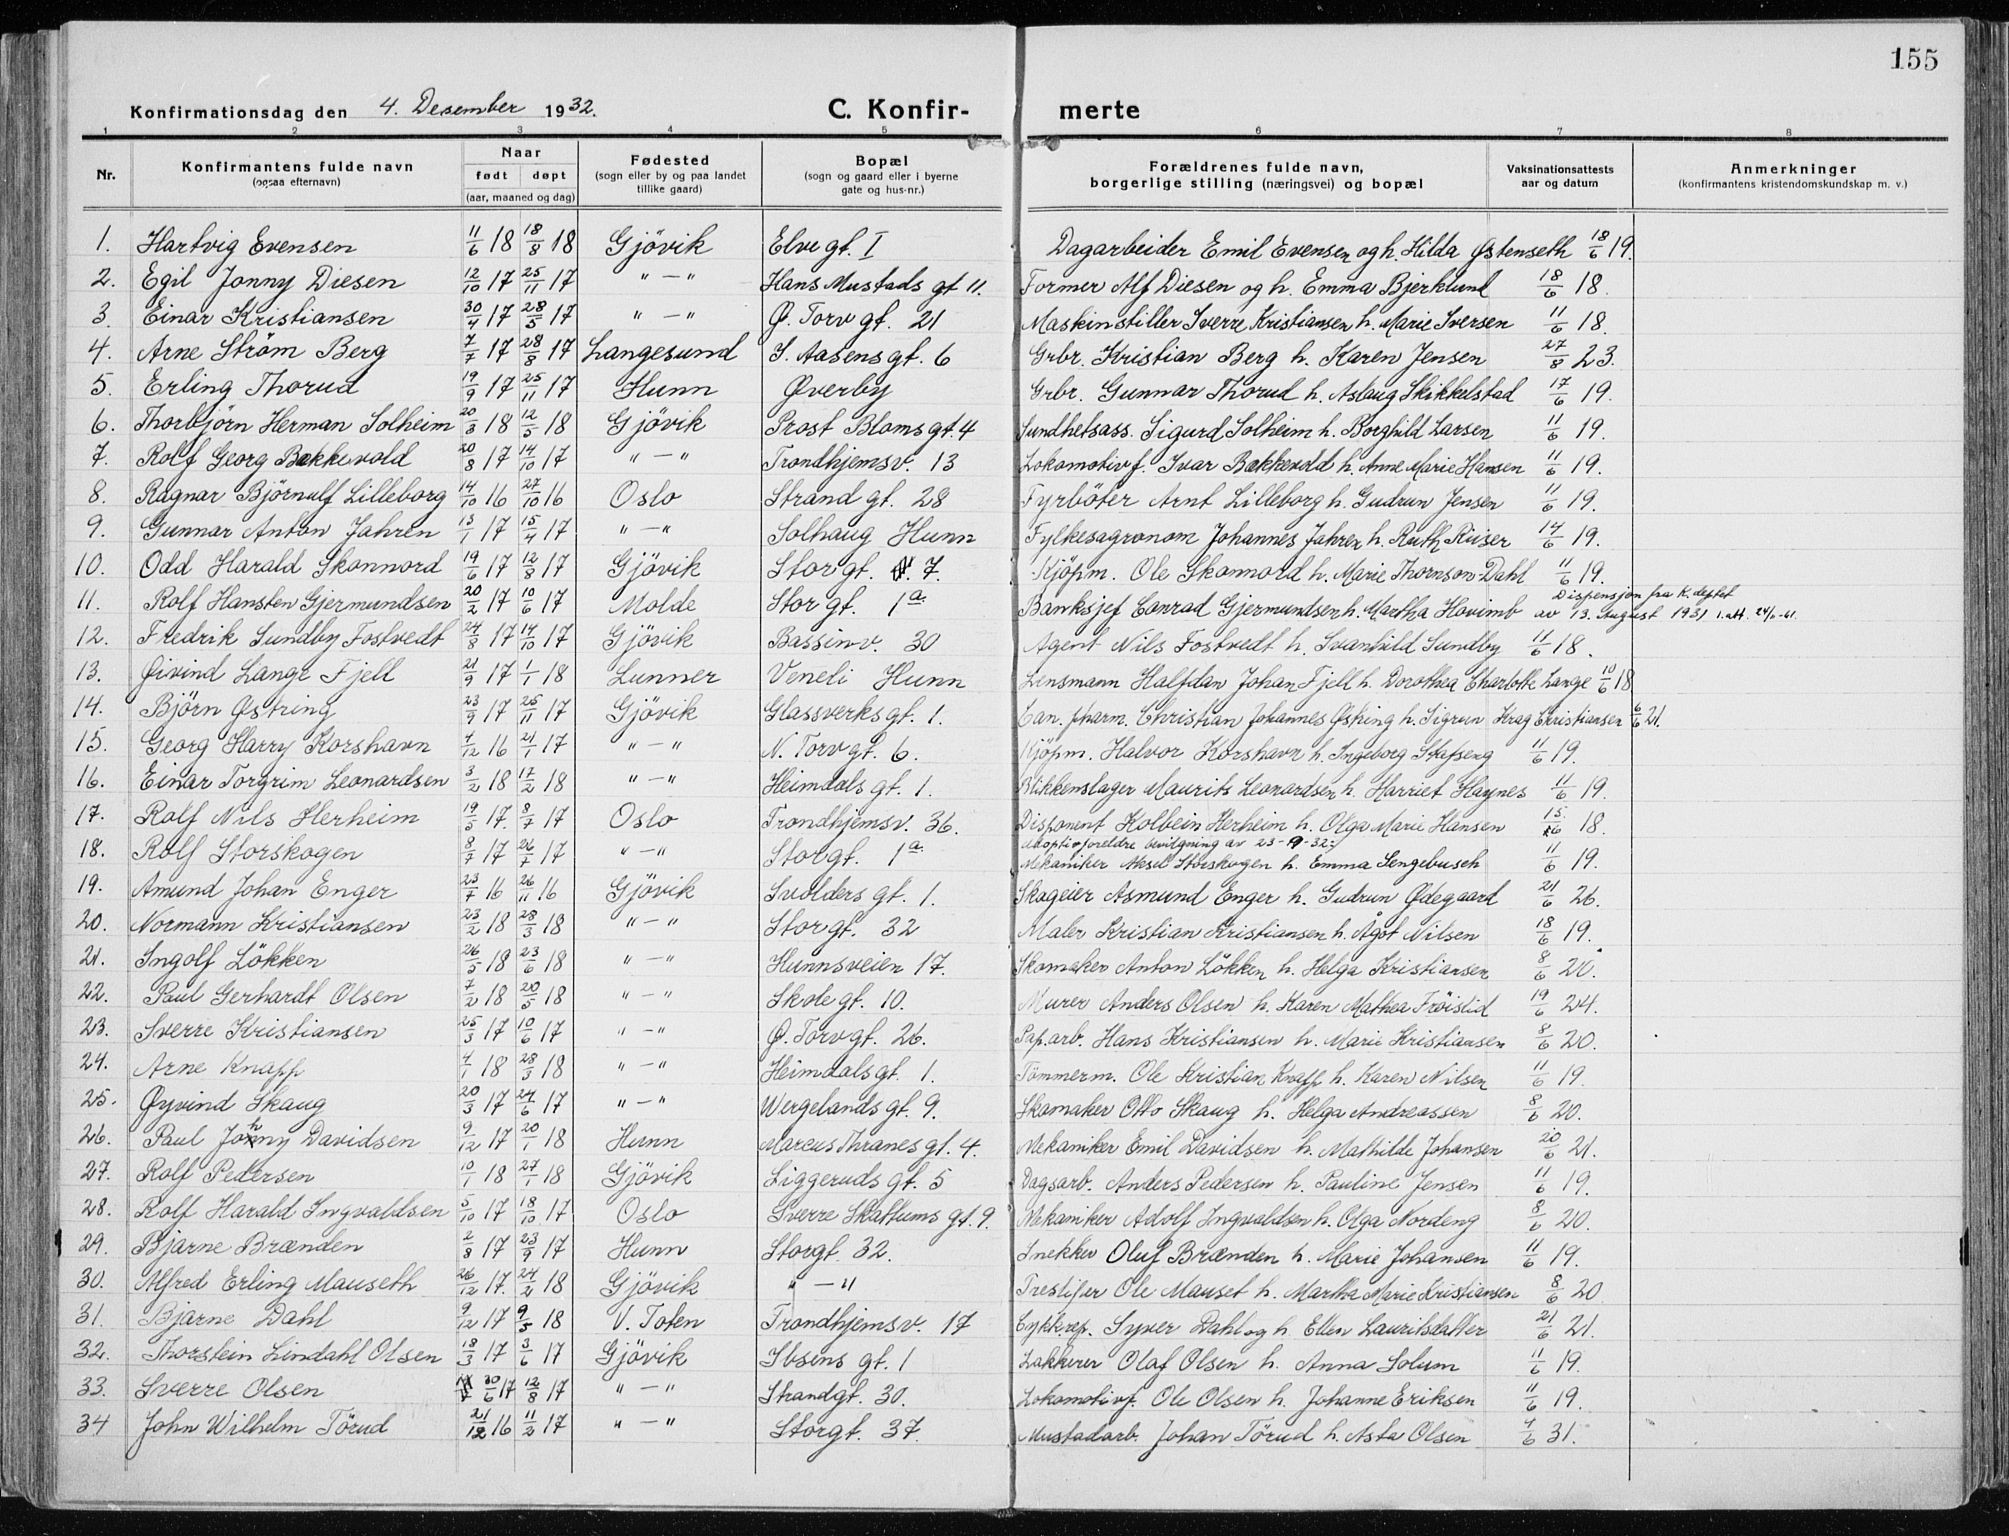 155
Konfirmationsdag den 4. Desember 1932. C. Konfirmerte
1 2 3 4 5 6 7 8
Nr. Konfirmantens fulde navn (ogsaa efternavn) Naar født døpt (aar, maaned og dag) Fødested (sogn eller by og paa landet tillike gaard) Bopæl (sogn og gaard eller i byerne gate og hus-nr.) Forældrenes fulde navn, borgerlige stilling (næringsvei) og bopæl Vaksinationsattests aar og datum Anmerkninger (konfirmantens kristendomskundskap m. v.)
1. Hartvig Evensen 11/6 18 18/8 18 Gjövik Elve gt. I Dagarbeider Emil Evensen og h. Hilda Østenseth 18/6 19.
2. Egil Jonny Diesen 12/10 17 25/11 17 " — " Hans Mustads gt 11. Former Alf Diesen og h. Emma Bjerklund 18/6 18.
3. Einar Kristiansen 30/4 17 28/5 17 " — " Ø. Torv gt. 21 Maskinstiller Sverre Kristiansen h. Marie Iversen 11/6 18.
4. Arne Ström Berg 7/7 17 28/8 17 Langesund I. Aasens gt. 6 Grbr. Kristian Berg h. Karen Jensen 27/8 23.
5. Erling Thorud 19/9 17 25/11 17 Hunn Øverby Grbr. Gunnar Thorud h. Aslaug Skikkelstad 17/6 19.
6. Thorbjörn Herman Solheim 20/3 18 12/5 18 Gjövik Prost Bloms gt. 4 Sundhetsass. Sigurd Solheim h. Borghild Larsen 11/6 19.
7. Rolf Georg Bakkevold 20/8 17 14/10 17 " — " Trondhjemsv. 13 Lokomotivf. Ivar Bakkevold h. Anne Marie Hansen 11/6 19.
8. Ragnar Björnulf Lilleborg 14/10 16 27/10 16 Oslo Strand gt. 28 Fyrböter Arnt Lilleborg h. Gudrun Jensen 11/6 19.
9. Gunnar Anton Jahren 13/1 17 15/4 17 " — " Solhaug Hunn Fylkesagronom Johannes Jahren h. Ruth Riiser 14/6 19.
10. Odd Harald Skonnord 19/6 17 12/8 17 Gjövik Storgt. 7. Kjöpm. Ole Skonnord h. Marie Thornson-Dahl 11/6 19.
11. Rolf Hansten Gjermundsen 20/2 17 10/6 17 Molde Stor gt. 1a. Banksjef Conrad Gjermundsen h. Martha Hovimb Dispensjon fra K. deptet av 13. August 1931 1. att. 24/-61.
12. Fredrik Sundby Fostvedt 24/8 17 14/10 17 Gjövik Bassinv. 30 Agent Nils Fostvedt h. Svanhild Sundby 11/6 18.
13. Øivind Lange Fjell 21/9 17 1/1 18 Lunner Veneli Hunn Lensmann Halfdan Johan Fjell h. Dorothea Charlotte Lange 10/6 18
14. Björn Østring 23/9 17 25/11 17 Gjövik Glassverks gt. 1. Can. pharm. Christian Johannes Østring h. Sigrun Krag Christiansen 6/6 21.
15. Georg Harry Korshavn 4/12 16 21/1 17 " — " N. Torv gt. 6. Kjöpm. Halvor Korshavn h. Ingeborg Stafseng 11/6 19.
16. Einar Torgrim Leonardsen 3/2 18 17/2 18 " — " Heimdals gt. 1. Blikkenslager Maurits Leonardsen h. Harriet Haynes 11/6 19.
17. Rolf Nils Herheim 19/5 17. 8/7 17 Oslo Trondhjemsv. 36. Disponent Kolbein Herheim h. Olga Marie Hansen 15/6 18.
18. Rolf Storskogen 8/7 17 26/7 17 " — " Storgt. 1a. adoptivforeldre bevilgning av 23-9-32: Mekaniker Aksel Storskogen h. Emma Sengebusch 11/6 19.
19. Amund Johan Enger 23/7 16 26/11 16 Gjövik Svolders gt. 1. Skogeier Asmund Enger h. Gudrun Ødegaard 21/6 26.
20. Normann Kristiansen 23/2 18 28/3 18 " — " Storgt. 32 Maler Kristian Kristiansen h. Ågot Nilsen 18/6 19.
21. Ingolf Lökken 26/5 18 23/6 18 " — " Hunnsveien 17. Skomaker Anton Lökken h. Helga Kristiansen 8/6 20.
22. Paul Gerhardt Olsen 7/2 18 20/5 18 " — " Skole gt. 10. Murer Anders Olsen h. Karen Mathea Fröislid 19/6 24.
23. Sverre Kristiansen 25/3 17 10/6 17 " — " Ø. Torvgt. 26. Pap.arb. Hans Kristiansen h. Marie Kristiansen 8/6 20.
24. Arne Knapp 4/1 18 28/3 18 " — " Heimdals gt. 1. Tömmerm. Ole Kristian Knapp h. Karen Nilsen 11/6 19.
25. Øyvind Skaug 20/3 17 24/6 17 " — " Wergelands gt. 9. Skomaker Otto Skaug h. Helga Andreassen 8/6 20.
26. Paul Johnny Davidsen 9/12 17 20/1 18 Hunn Marcus Thranes gt. 4. Mekaniker Emil Davidsen h. Mathilde Johansen 20/6 21.
27. Rolf Pedersen 10/1 18 27/1 18 Gjövik Liggeruds gt. 5 Dagsarb. Anders Pedersen h. Pauline Jensen 11/6 19.
28. Rolf Harald Ingvaldsen 5/10 17 18/10 17 Oslo Sverre Skattums gt. 9. Mekaniker Adolf Ingvaldsen h. Olga Nordeng 8/6 20.
29. Bjarne Brænden 2/8 17 23/9 17 Hunn Storgt. 32. Snekker Oluf Brænden h. Marie Johansen 11/6 19.
30. Alfred Erling Mauseth 26/12 17. 24/2 18 Gjövik " — " Tresliper Ole Mauset h. Martha Marie Kristiansen 8/6 20
31. Bjarne Dahl 9/12 17 9/5 18 V. Toten Trondhjemsv. 17 Cykk.rep. Syver Dahl og h. Ellen Lauritsdatter 21/6 21.
32. Thorstein Lindahl Olsen 18/3 17 3/6 17 Gjövik Ibsens gt. 1 Lakkerer Olaf Olsen h. Anna Solum 11/6 19.
33. Sverre Olsen 30/6 17 12/8 17 " — " Strandgt. 30. Lokomotivf. Ole Olsen h. Johanne Eriksen 11/6 19.
34 John Wilhelm Törud 21/12 16 11/2 17 " — " Storgt. 37. Mustadarb. Johan Törud h. Asta Olsen 4/6 31.